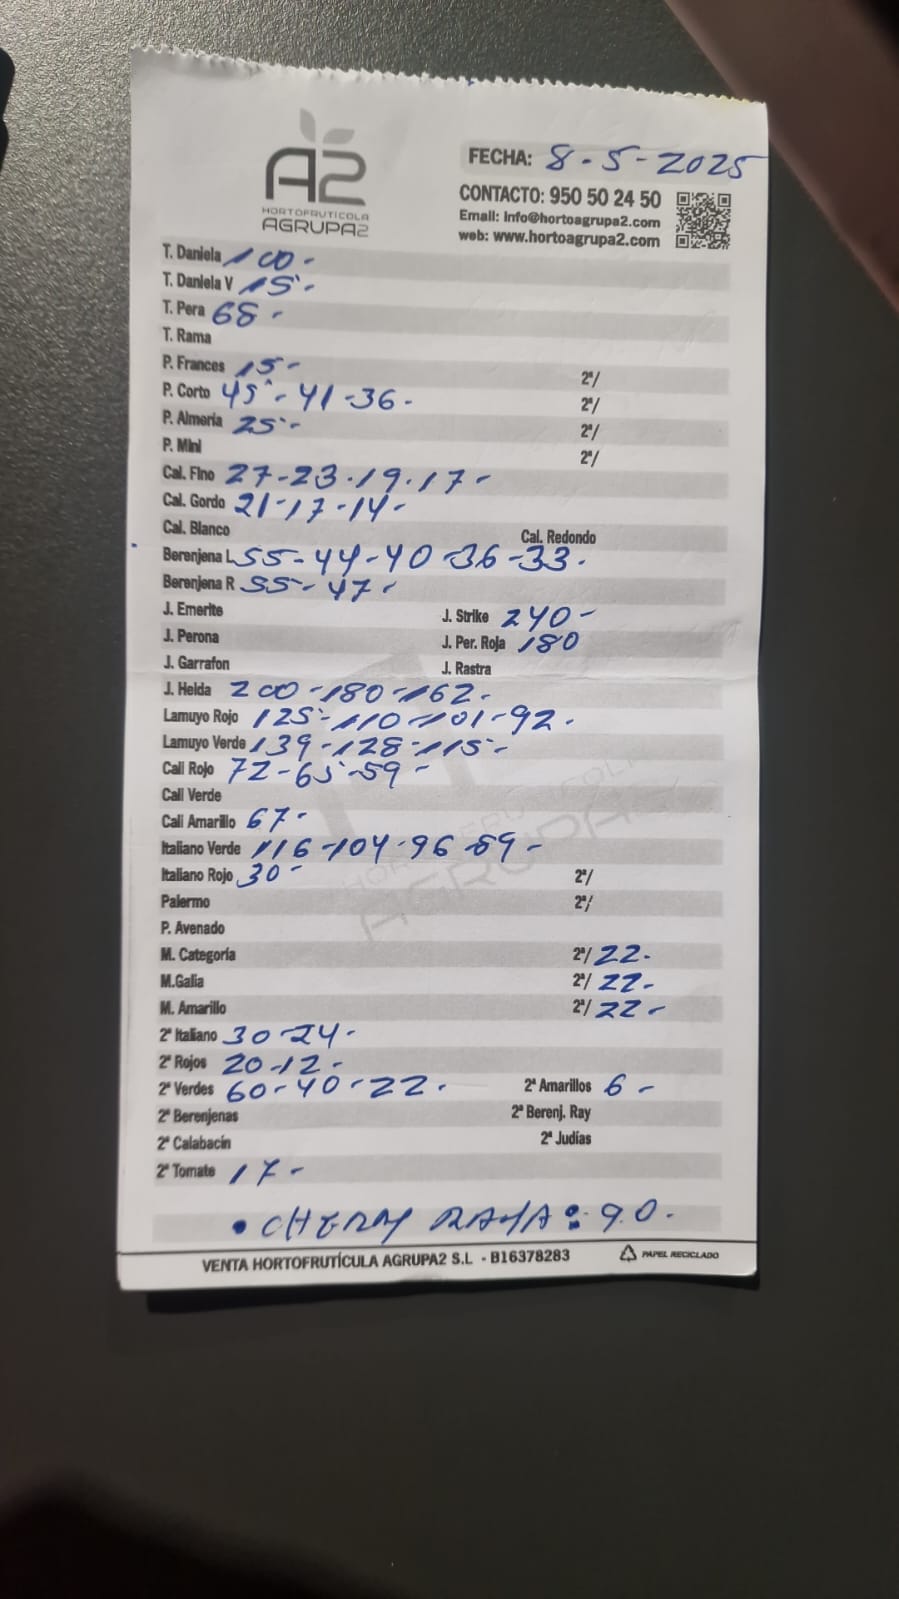 A2
HORTOFRUTÍCOLA
AGRUPA2
FECHA: 8-5-2025
CONTACTO: 950 50 24 50
Email: info@hortoagrupa2.com
web: www.hortoagrupa2.com
T. Daniela 100-
T. Daniela V 15-
T. Pera 68-
T. Rama
P. Frances 15- 2ª/
P. Corto 45-41-36- 2ª/
P. Almería 25- 2ª/
P. Mini 2ª/
Cal. Fino 27-23-19-17-
Cal. Gordo 21-17-14-
Cal. Blanco Cal. Redondo
Berenjena L 55-44-40-36-33.
Berenjena R 55-47-
J. Emerite J. Strike 240-
J. Perona J. Per. Roja 180
J. Garrafon J. Rastra
J. Helda 200-180-162-
Lamuyo Rojo 125-110-101-92.
Lamuyo Verde 139-128-115-
Cali Rojo 72-65-59-
Cali Verde
Cali Amarillo 67-
Italiano Verde 116-104-96-89-
Italiano Rojo 30- 2ª/
Palermo 2ª/
P. Avenado
M. Categoría 2ª/ 22-
M.Galia 2ª/ 22-
M. Amarillo 2ª/ 22-
2ª Italiano 30-24-
2ª Rojos 20-12-
2ª Verdes 60-40-22- 2ª Amarillos 6-
2ª Berenjenas 2ª Berenj. Ray
2ª Calabacín 2ª Judías
2ª Tomate 17-
• CHERRY RAMA: 90-
VENTA HORTOFRUTÍCULA AGRUPA2 S.L - B16378283 PAPEL RECICLADO